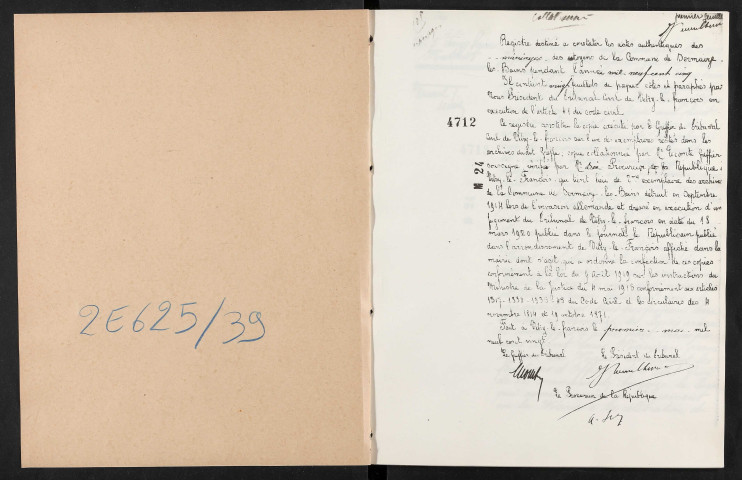 2E625/39
premier feuillet
Registre destiné a constater les actes authentiques des
mariages, des citoyens de la Commune de Sermaize
les Bains pendant l'année mil neuf cent cinq
Il contient feuillets de papier côtés et paraphés par
Nous Président du Tribunal Civil de Vitry-le-françois en
exécution de l'article 41 du code civil
4712
Ce registre constitue la copie exécutée par le Greffier du tribunal
civil de Vitry-le-françois sur l'un des exemplaires restés dans les
archives dudit Greffe, copie collationnée par Greffier
soussigné vérifiée par Procureur de la République
M 24
Vitry-le-François, qui tient lieu de 2me exemplaire des archives
de la Commune de Sermaize-les-Bains détruit en Septembre
1914 lors de l'invasion allemande et dressé en exécution d'un
jugement du Tribunal de Vitry-le-françois en date du 18
mars 1920 publié dans le journal le Républicain publié
dans l'arrondissement de Vitry-le-François affiché dans la
mairie dont s'agit que a ordonné la confection de ces copies
conformément à la loi du août 1919 sur les instructions du
Ministre de la Justice du 4 mai 1916 conformément aux articles
du Code Civil et les circulaires des 4
novembre 1814 et 19 octobre 1871.
Fait à Vitry-le-françois le premier mai mil
neuf cent vingt
Le greffier du tribunal Le Président du tribunal
Le Procureur de la République